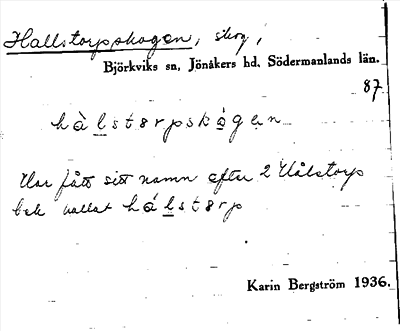 Hallstorpskogen, skog,
Björkviks sn, Jönåkers hd, Södermanlands län.
87
hàlstørpskógen
Har fått sitt namn efter 2 Ulvstorp
bak kallat hálstørp
Karin Bergström 1936.